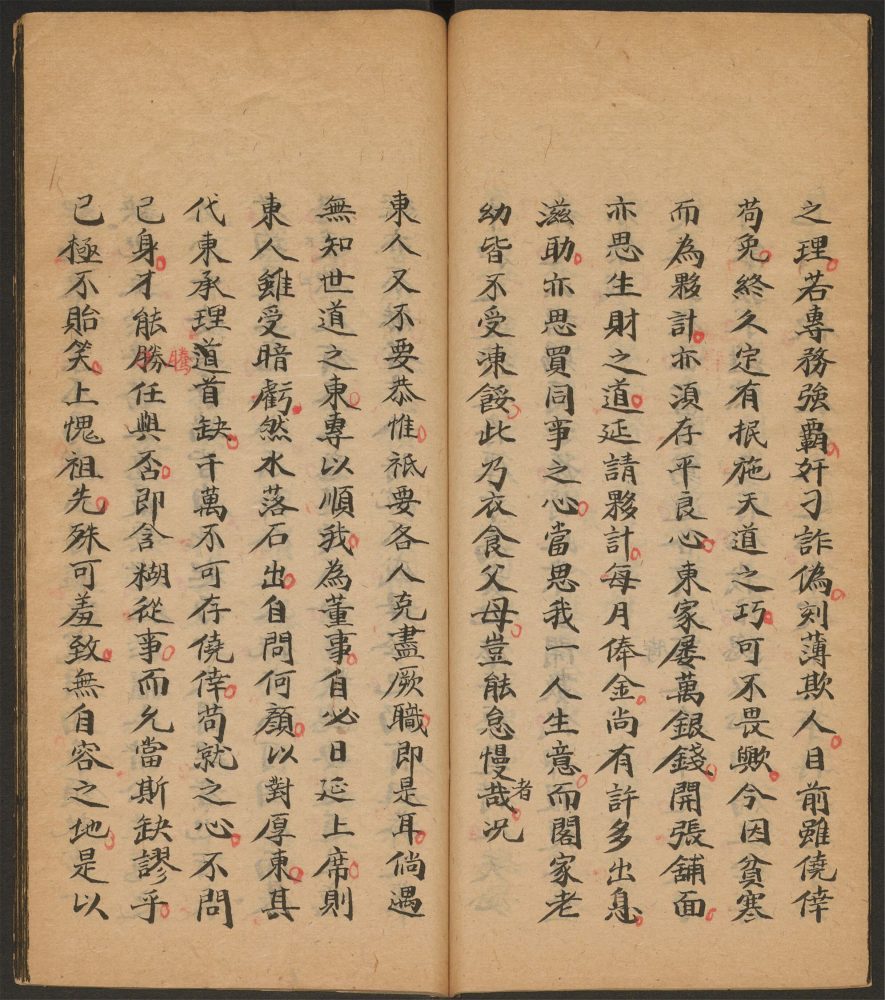 之理若專務強霸奸刁詐偽刻薄欺人目前雖僥倖
苟免終久定有報施天道之巧可不畏歟今因貧寒
而為夥計亦須存平良心東家屢萬銀錢開張舖面
亦思生財之道延請夥計每月俸金尚有許多出息
滋助亦思買同事之心當思我一人生意而閤家老
幼皆不受凍餒此乃衣食父母豈能怠慢哉者况
東人又不要恭惟祗要各人克盡厥職即是耳倘遇
無知世道之東專以順我為董事自必日延上席則
東人雖受暗虧然水落石出自問何顏以對厚東其
代東承理道首缺千萬不可存僥倖苟就之心不問
騰
己身才能勝任與否即含糊從事而允當斯缺謬乎
已極不貽笑上愧祖先殊可羞致無自容之地是以